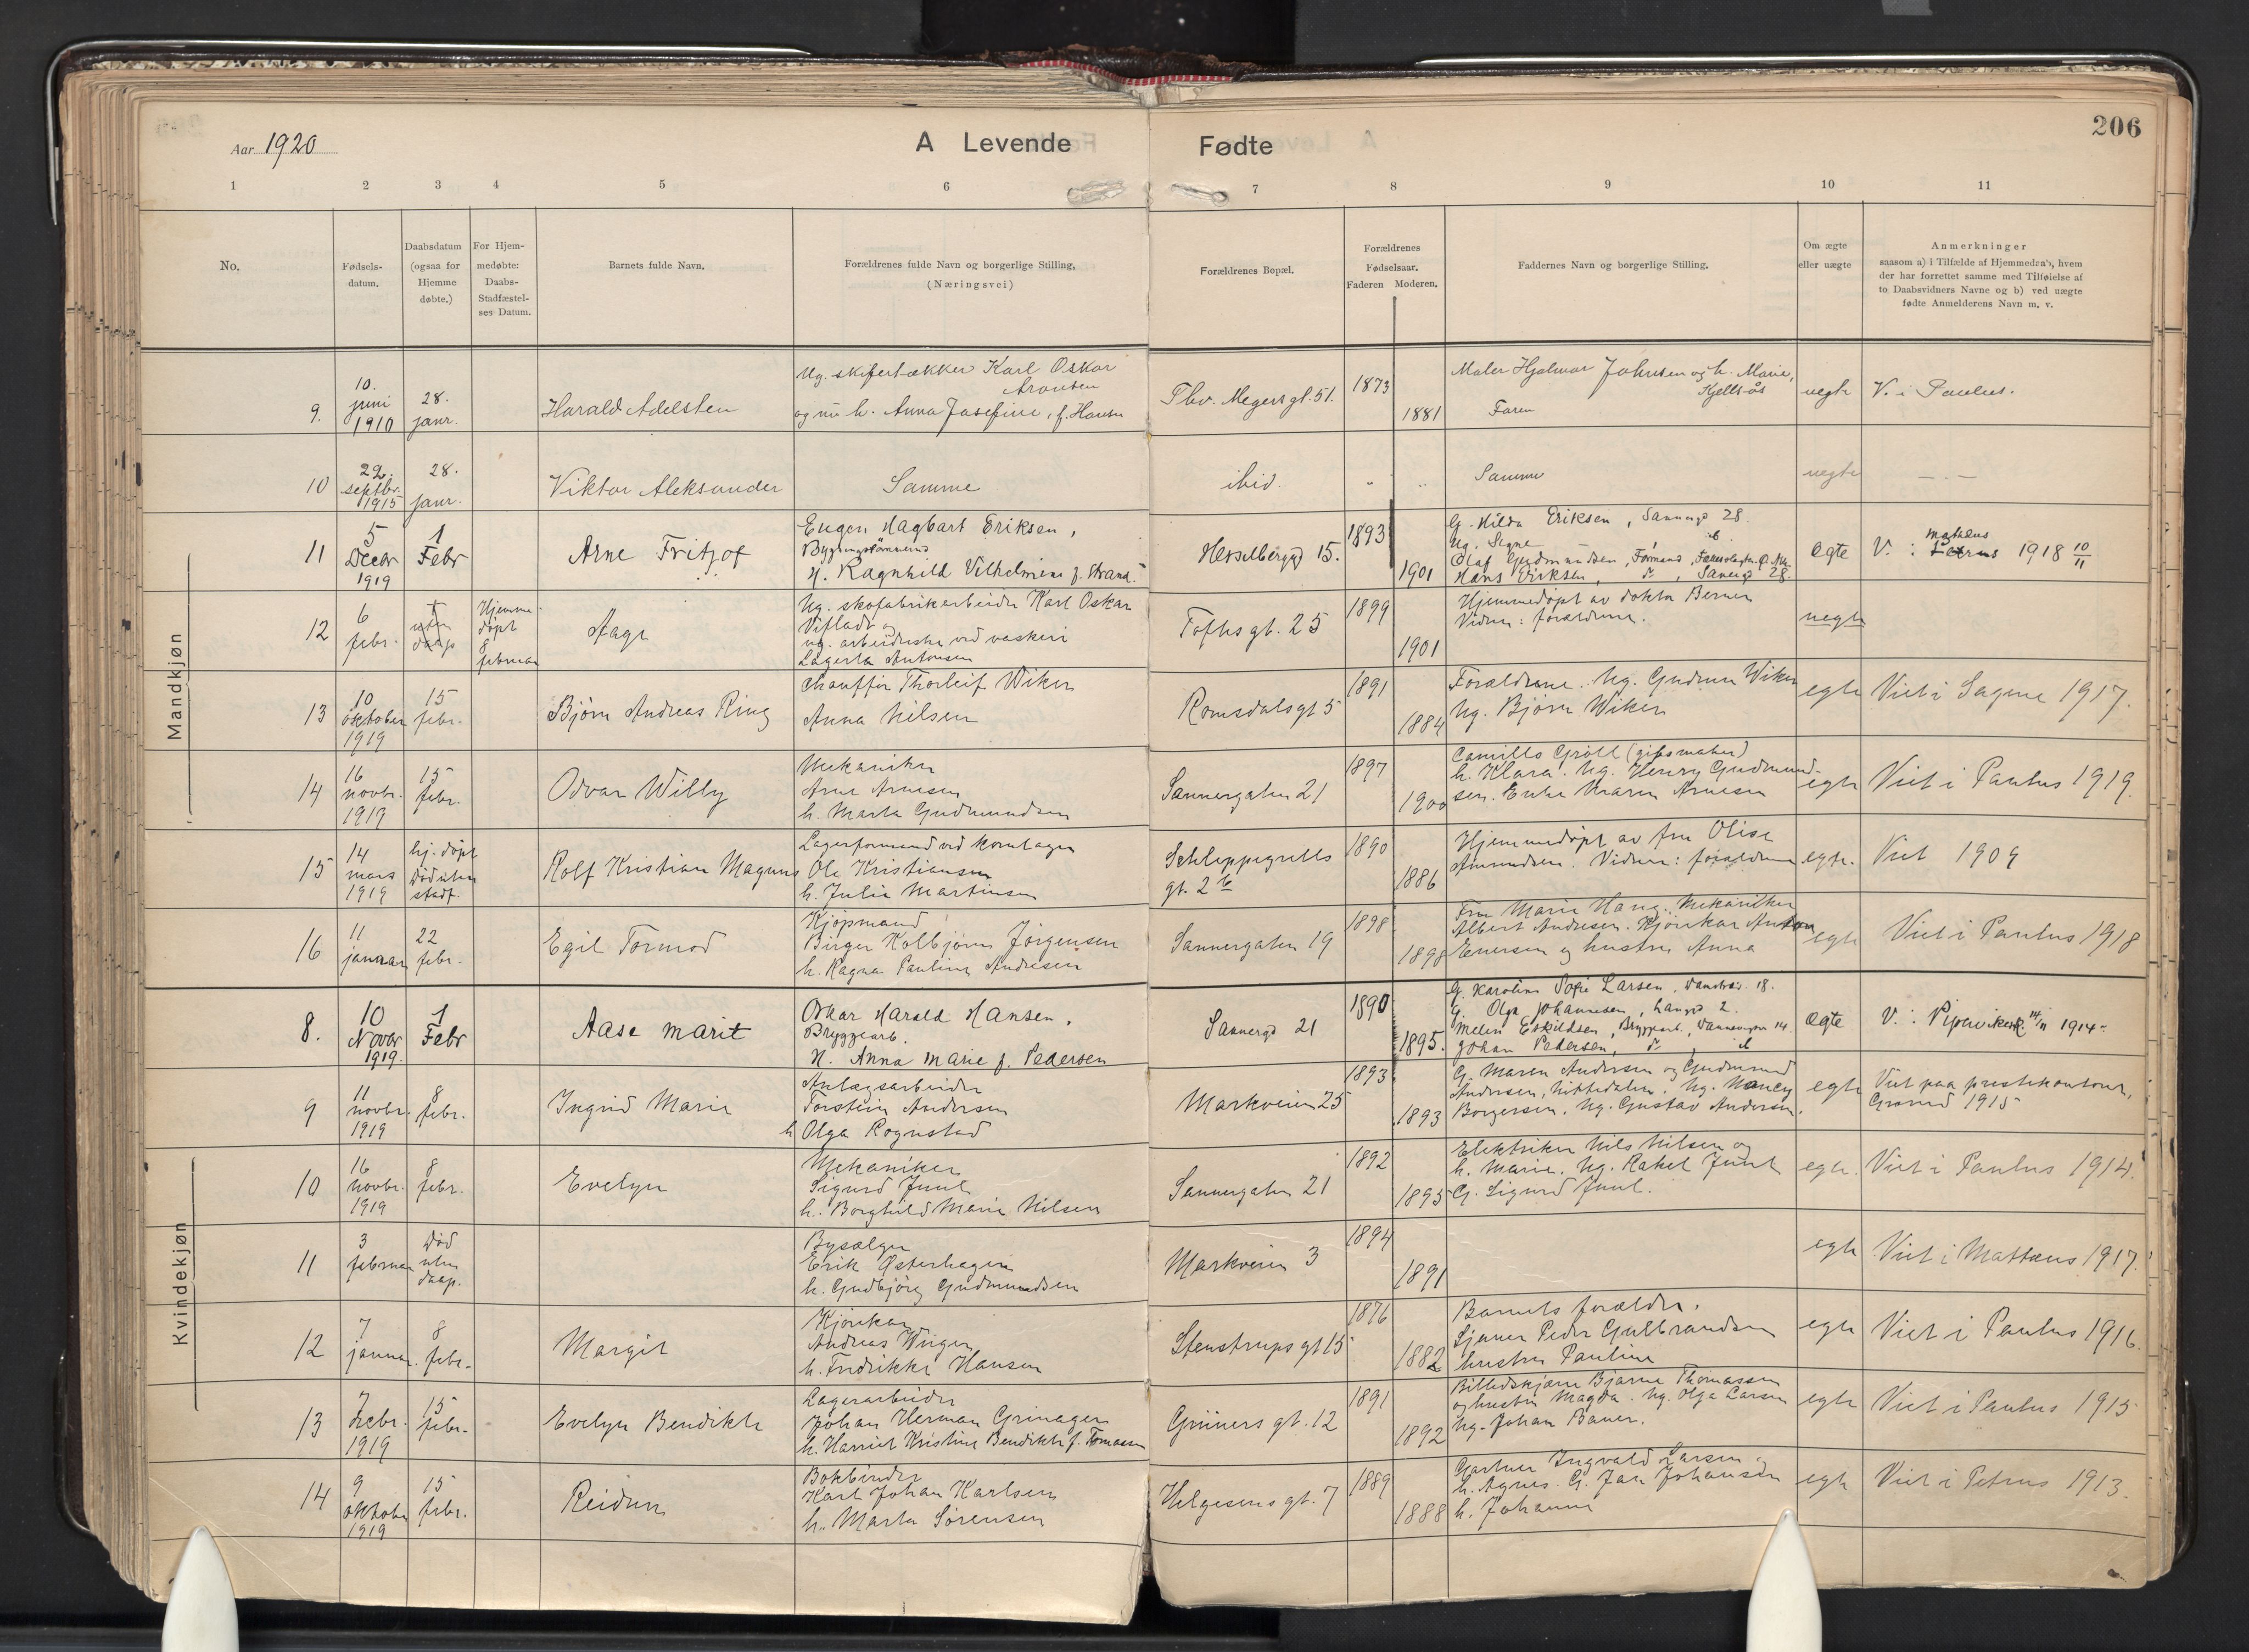 Aar 1920
A Levende Fødte
206
1 2 3 4 5 6 7 8 9 10 11
No.
Fødsels-
datum.
Daabsdatum
(ogsaa for
Hjemme
døbte.)
For Hjem-
medøbte:
Daabs-
Stadfæstel-
ses Datum.
Barnets fulde Navn.
Forældrenes fulde Navn og borgerlige Stilling.
(Næringsvei)
Forældrenes Bopæl.
Forældrenes
Fødselsaar.
Faderen Moderen.
Faddernes Navn og borgerlige Stilling.
Om ægte
eller uægte
Anmerkninger
saasom a) i Tilfælde af Hjemmedaab, hvem
der har forrettet samme med Tilføielse af
to Daabsvidners Navne og b) ved uægte
fødte Anmelderens Navn m. v.
Mandkjøn
9.
10.
juni
1910
28.
janr.
Harald Adelsten
Ug. skifertækker Karl Oskar
Aronsen
og nu h. Anna Josefine, f. Hansen
Thv. Meyers gt. 51.
1873
1881
Maler Hjalmar Johnsen og h. Marie,
Kjellsås
Faren
uegte
V. i Paulus.
10
22.
septbr.
1915
28.
janr.
Viktor Aleksander
Samme
ibid.
" "
Samme
uegte
— " —
11
5
Decbr
1919
1
Febr
Arne Fritjof
Eugen Hagbart Eriksen,
H. Ragnhild Vilhelmine f. Strand.
Hesselbergs 15.
1893
1901
G. Hilda Eriksen, Sannergt 28.
Ug. Signe
Olaf Gudmundsen, Formand,
Hans Eriksen, do, Sanergt 28.
Ægte
V. : Petrus
Matheus
1918 10/11
12
6
febr.
†
uten
daap
Hjemme-
døpt
8
februar
Aage
Ug. skofabrikarbeider Karl Oskar
Viflade og
ug. arbeiderske ved vaskeri
Lagerta Antonsen
Toftesgt. 25
1899
1901
Hjemmedøpt av doktor Berner
Vidner: forældrene.
uegte
13
10
oktober
1919
15
febr.
Bjørn Andreas Ring
Chauffør Thorleif Wiker
Anna Nilsen
Romsdalsgt 5
1891
1884
Forældrene. Ug. Gudrun Wiker
Ug. Bjørn Wiker
egte
Viet i Sagene 1917.
14
16
novbr.
1919
15
febr.
Odvar Willy
Mekaniker
Arne Arnesen
h. Marta Gudmundsen
Sannergaten 21
1897
1900
Camillo Gröll (gipsmaker)
h. Klara. Ug. Henry Gudmund-
sen. Enke Maren Arnesen
egte
Viet i Paulus 1919.
15
14
mars
1919
hj. døpt
Død uten
stadf.
Rolf Kristian Magnus
Lagerformand ved kornlager
Ole Kristiansen
h. Julie Martinsen
Schleppegrells
gt. 2 b
1890
1886
Hjemmedøpt av fru Olise
Amundsen. Vidner: forældrene
egte.
Viet 1909
16
11
januar
22
febr.
Egil Tormod
Kjøpmand
Birger Kolbjørn Jørgensen
h. Ragna Pauline Andresen
Sannergaten 19
1898
1898
Fru Marie Haug. Mekaniker
Albert Andresen. Kjørekar Anton
Enersen og hustru Anna
egte
Viet i Paulus 1918
Kvindekjøn
8.
10
Novbr
1919.
1
Febr
Aase Marit
Oskar Harald Hansen.
Bryggearb.
H. Anna Marie f. Pedersen
Sannergt 21
1890
1895.
G. Karoline Sofie Larsen, 18.
G. Olga Johannesen, Langgt 2.
Melin Eskildsen, Bryggearb., 14.
Johan Pedersen, do, ib
Ægte
V. : Piperviken. 14/11 1914.
9
11
novbr.
1919
8
febr.
Ingrid Marie
Anlægsarbeider
Torstein Andersen
h Olga Rognstad
Markveien 25
1893
1893
G. Maren Andersen og Gudmund
Andersen, Nittedalen. Ug. Nancy
Borgersen. Ug. Gustav Andersen.
egte
Viet paa prestekontoret,
Grorud 1915
10
16
novbr.
1919
8
febr.
Evelyn
Mekaniker
Sigurd Juul
h. Borghild Marie Nilsen
Sannergaten 21
1892
1895
Elektriker Nils Nilsen og
h. Marie. Ug. Rakel Juul
G. Sigurd Juul.
egte.
Viet i Paulus 1914.
11
3
februar
Død
uten
daap.
Bysælger
Erik Østerhagen
h. Gudbjørg Gudmundsen
Markveien 3
1894
1891
egte
Viet i Mattæus 1917.
12
7
januar.
8
febr.
Margit
Kjørekar
Andreas Wiiger
h. Fredrikke Hansen
Stenstrups gt 15
1876
1882
Barnets forældre.
Sjauer Peder Gulbrandsen
hustru Pauline
egte
Viet i Paulus 1916.
13
7
decbr.
1919
15
febr.
Evelyn Bendikte
Lagerarbeider
Johan Herman Grinager
h. Harriet Kristine Bendikte f. Tomassen
Grüners gt. 12
1891
1892
Billedskjærer Bjarne Thomassen
og hustru Magda. Ug. Olga Larsen
Ug. Johan Bauer.
egte
Viet i Paulus 1915
14
9
oktober
1919
15
febr.
Reidun
Bokbinder
Karl Johan Karlsen
h. Marta Sørensen
Helgesens gt. 7
1889
1888
Gartner Ingvald Larsen.
h. Agnes. G. Jan Johansen
h. Johanne
egte
Viet i Petrus 1913.